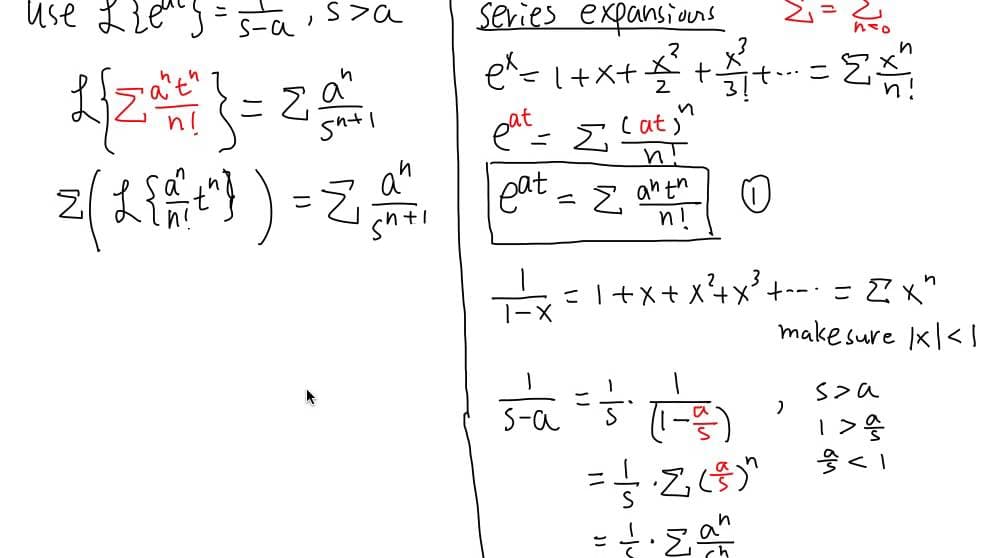 use ℒ{e^{at}} = 1/(s-a), s>a
ℒ{Σ a^n t^n / n!} = Σ a^n / s^{n+1}
Σ(ℒ{a^n/n! t^n}) = Σ a^n / s^{n+1}
series expansions
Σ = Σ_{n=0}
e^x = 1+x+x^2/2+x^3/3!+··· = Σ x^n/n!
e^{at} = Σ (at)^n / n!
e^{at} = Σ a^n t^n / n! ①
1/(1-x) = 1+x+x^2+x^3+···· = Σ x^n
make sure |x|<1
1/(s-a) = 1/s · 1/(1-a/s) , s>a
1 > a/s
a/s < 1
= 1/s · Σ (a/s)^n
= 1/s · Σ a^n/s^n